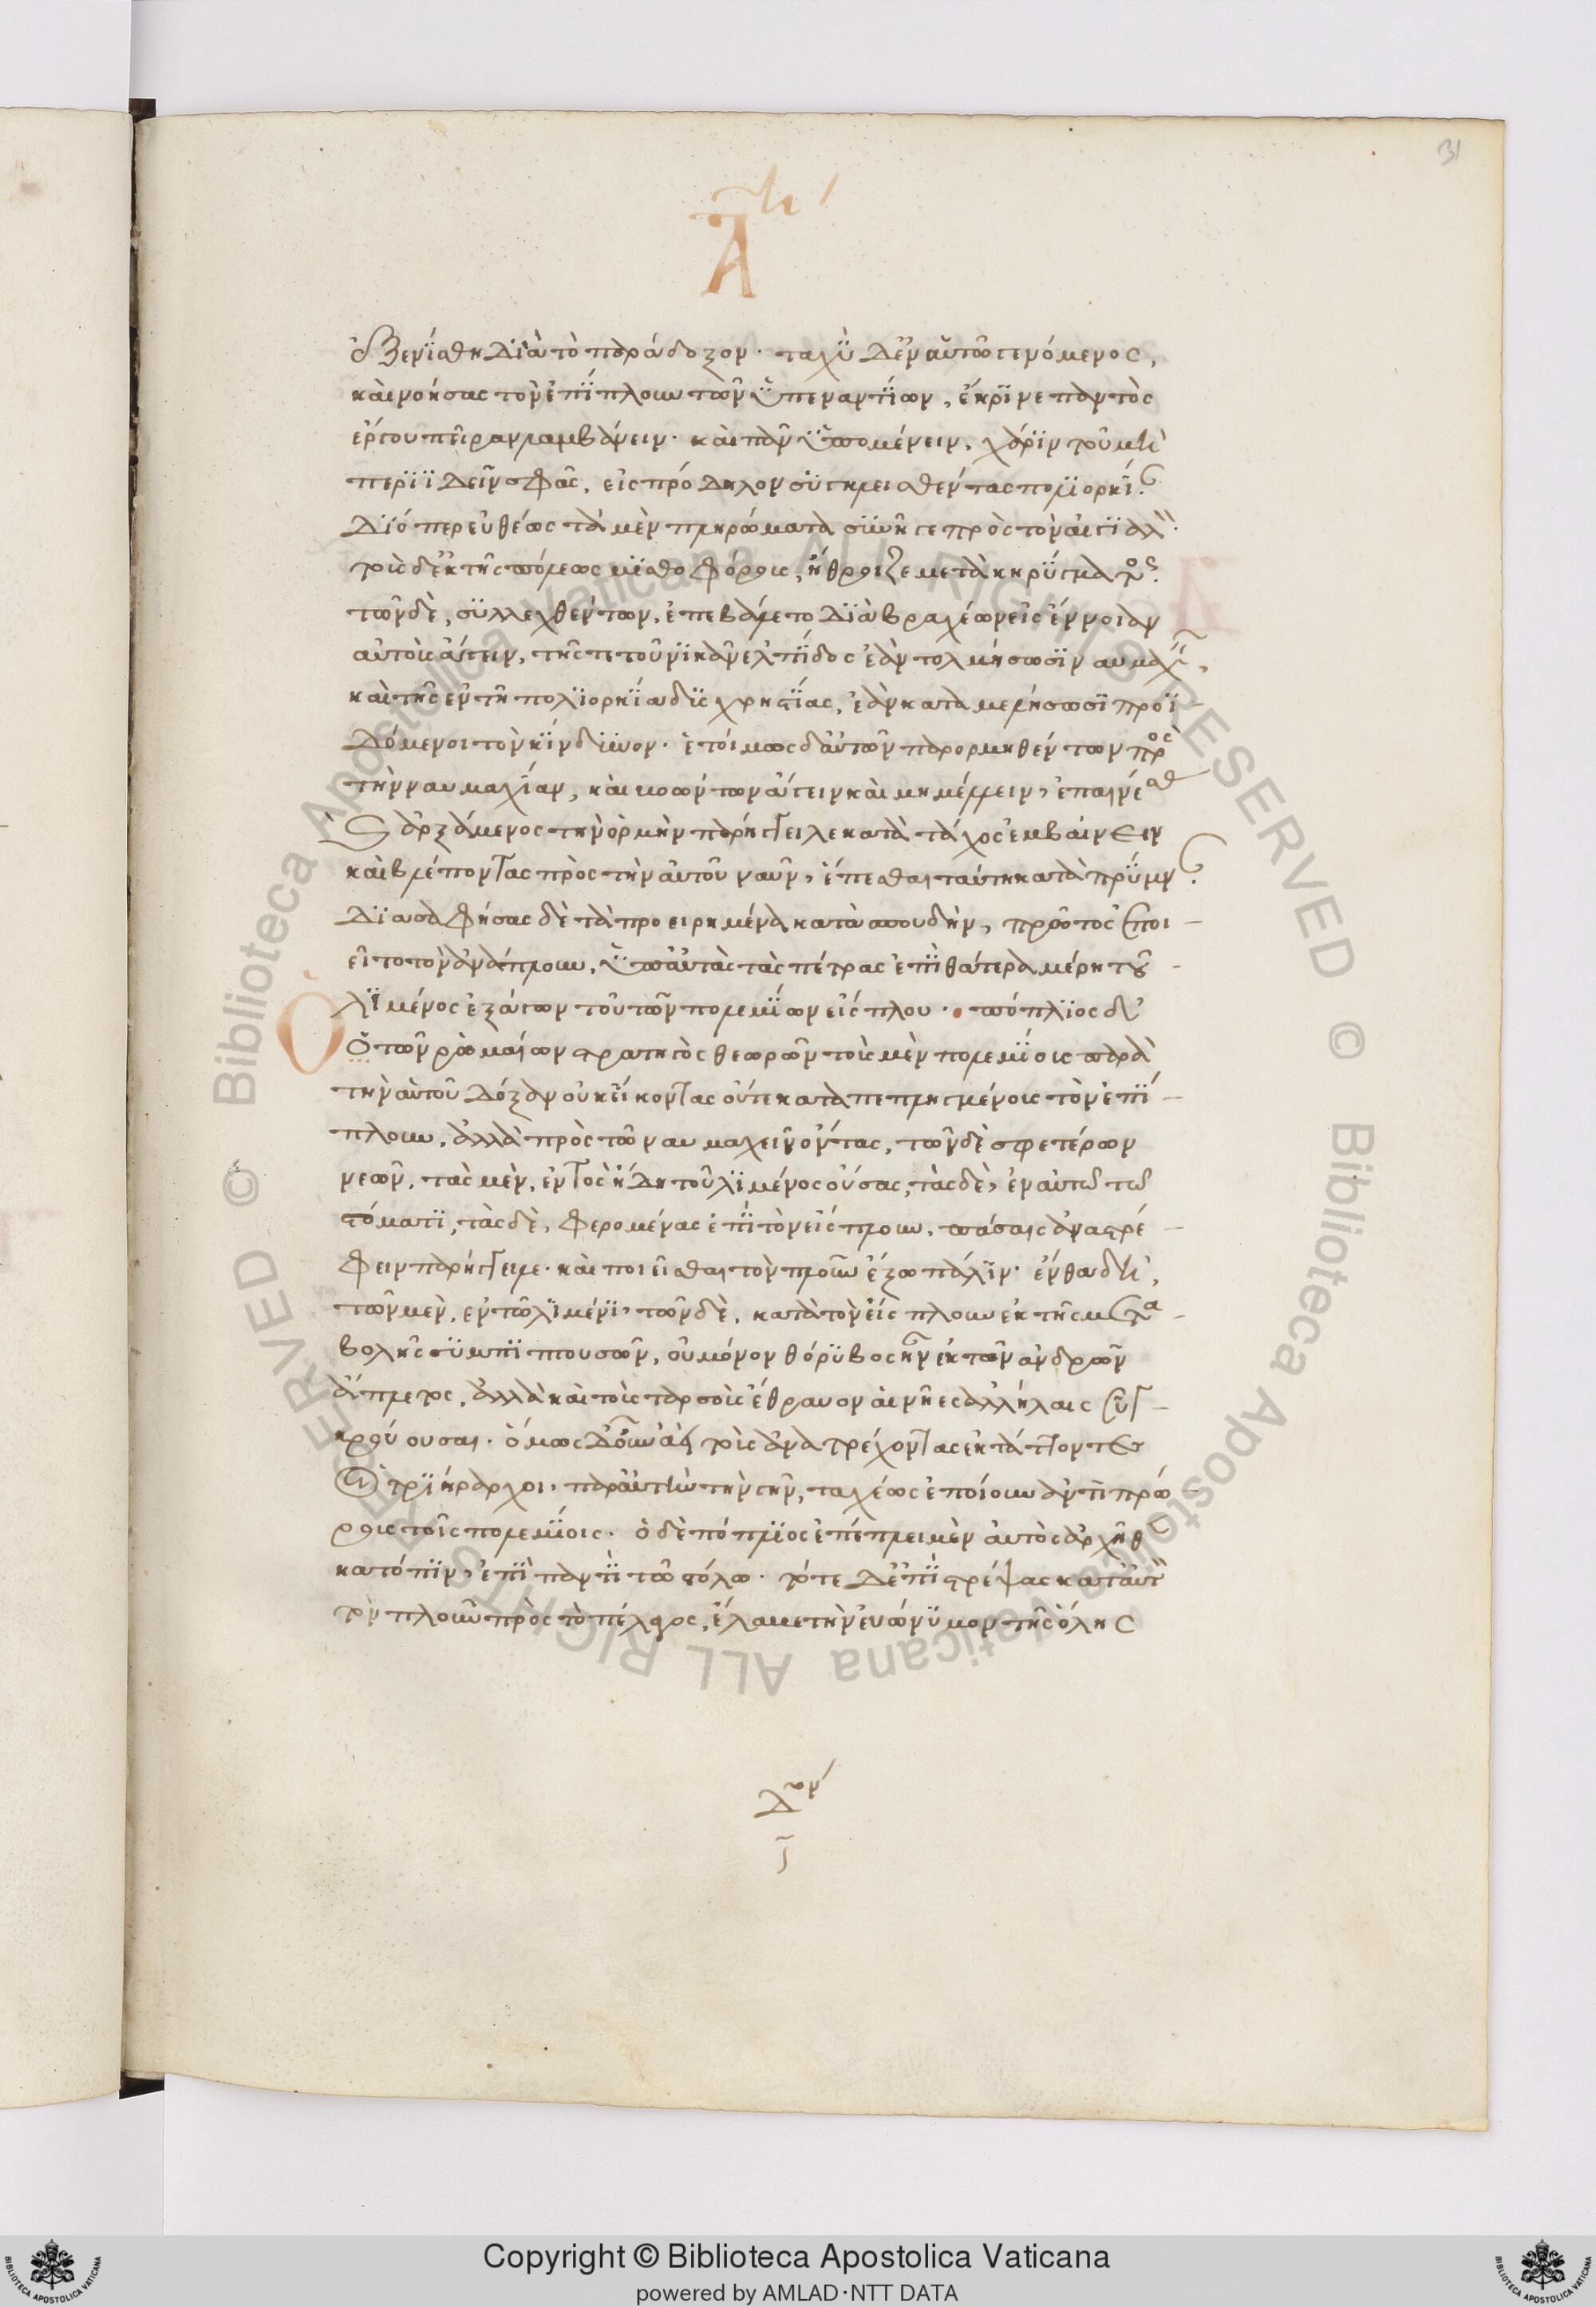 Ἀ λη
ἐξενίσθη διὰ τὸ παράδοξον· ταχὺ δ' ἐν αὑτῶ γενόμενος,
καὶ νοήσας τὸν ἐπίπλουν τῶν ὑπεναντίων, ἔκρινε παντὸς
ἔργου πεῖραν λαμβάνειν· καὶ πᾶν ὑπομένειν, χάριν τοῦ μὴ
περιϊδεῖν σφᾶς, εἰς πρόδηλον συγκλεισθέντας πολιορκί(αν).
διόπερ εὐθέως τὰ μὲν πληρώματα συνῆγε πρὸς τὸν αἰγιαλ(όν).
τοὺς δ' ἐκ τῆς πόλεως μισθοφόρους, ἤθροιζε μετὰ κηρύγματος.
τῶν δὲ, συλλεχθέντων, ἐπεβάλετο διὰ βραχέων εἰς ἔννοιαν
αὐτοὺς ἄγειν, τῆς τε τοῦ νικᾶν ἐλπίδος ἐὰν τολμήσωσιν αυμαχεῖν,
καὶ τῆς ἐν τῆ πολιορκία δισχρηστίας, ἐὰν καταμελήσωσι προϊ-
δόμενοι τὸν κίνδυνον· ἑτοίμως δ' αὐτῶν παρορμηθέντων πρὸς
τὴν ναυμαχίαν, καὶ βοώντων ἄγειν καὶ μὴ μέλλειν, ἐπαινέσας
καὶ δεξάμενος τὴν ὁρμὴν παρήγγειλε κατὰ τάχος ἐμβαίνειν
καὶ βλέποντας πρὸς τὴν αὑτοῦ ναῦν, ἕπεσθαι ταύτη κατὰ πρύμν(αν).
διασαφήσας δὲ τὰ προειρημένα κατὰ σπουδὴν, πρῶτος ἐποι-
εῖτο τὸν ἀνάπλουν, ὑπ' αὐτὰς τὰς πέτρας ἐπὶ θάτερα μέρη τοῦ -
λιμένος ἐξάγων τοῦ τῶν πολεμίων εἴσπλου· πόπλιος δ'
ὁ τῶν ῥωμαίων στρατηγὸς θεωρῶν τοὺς μὲν πολεμίους παρὰ
τὴν αὑτοῦ δόξαν οὐκ εἴκοντας οὔτε καταπεπληγμένους τὸν ἐπί-
πλουν, ἀλλὰ πρὸς τῶ ναυμαχεῖν ὄντας, τῶν δὲ σφετέρων
νεῶν, τὰς μὲν, ἐντὸς ἤδη τοῦ λιμένος οὔσας, τὰς δὲ, ἐν αὐτῶ τῶ
στόματι, τὰς δὲ, φερομένας ἐπὶ τὸν εἴσπλουν, πάσαις ἀναστρέ-
φειν παρήγγειλε· καὶ ποιεῖσθαι τὸν πλοῦν ἔξω πάλιν· ἔνθα δὴ,
τῶν μὲν, ἐν τῶ λιμένι, τῶν δὲ, κατὰ τὸν εἴσπλουν ἐκ τῆς μετα-
βολῆς συμπιπτουσῶν, οὐ μόνον θόρυβος ἦν ἐκ τῶν ἀνδρῶν
ἄπλετος, ἀλλὰ καὶ τοὺς ταρσοὺς ἔθραυον αἱ νῆες ἀλλήλαις συγ-
κρούουσαι· ὅμως δ' οὖν ἀεὶ τοὺς ἀνατρέχοντας ἐκτάττοντες
οἱ τριήραρχοι, παρ' αὐτὴν τὴν γῆν, ταχέως ἐποίουν ἀντιπρώ-
ρους τοῖς πολεμίοις· ὁ δὲ πόπλιος ἐπέπλει μὲν αὐτὸς ἀρχῆθεν
κατόπιν, ἐπὶ παντὶ τῶ στόλω· τότε δ' ἐπιστρέψας κατ' αὐτ(ὸν)
τὸν πλοῦν πρὸς τὸ πέλαγος, ἔλαβε τὴν εὐώνυμον τῆς ὅλης